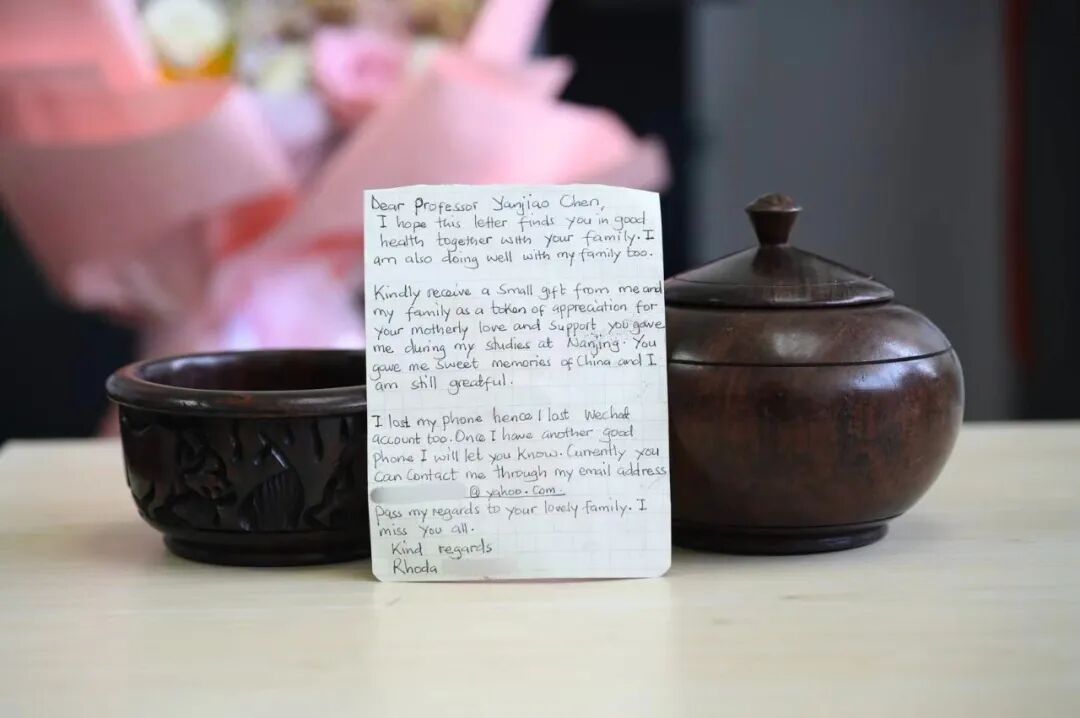 Dear Professor Yanjiao Chen,
I hope this letter finds you in good
health together with your family. I
am also doing well with my family too.
Kindly receive a small gift from me and
my family as a token of appreciation for
your motherly love and support you gave
me during my studies at Nanjing. You
gave me sweet memories of China and I
am still greatful.
I lost my phone hence I lost wechat
account too. Once I have another good
phone I will let you know. Currently you
can contact me through my email address
@yahoo.com.
pass my regards to your lovely family. I
miss you all.
Kind regards
Rhoda